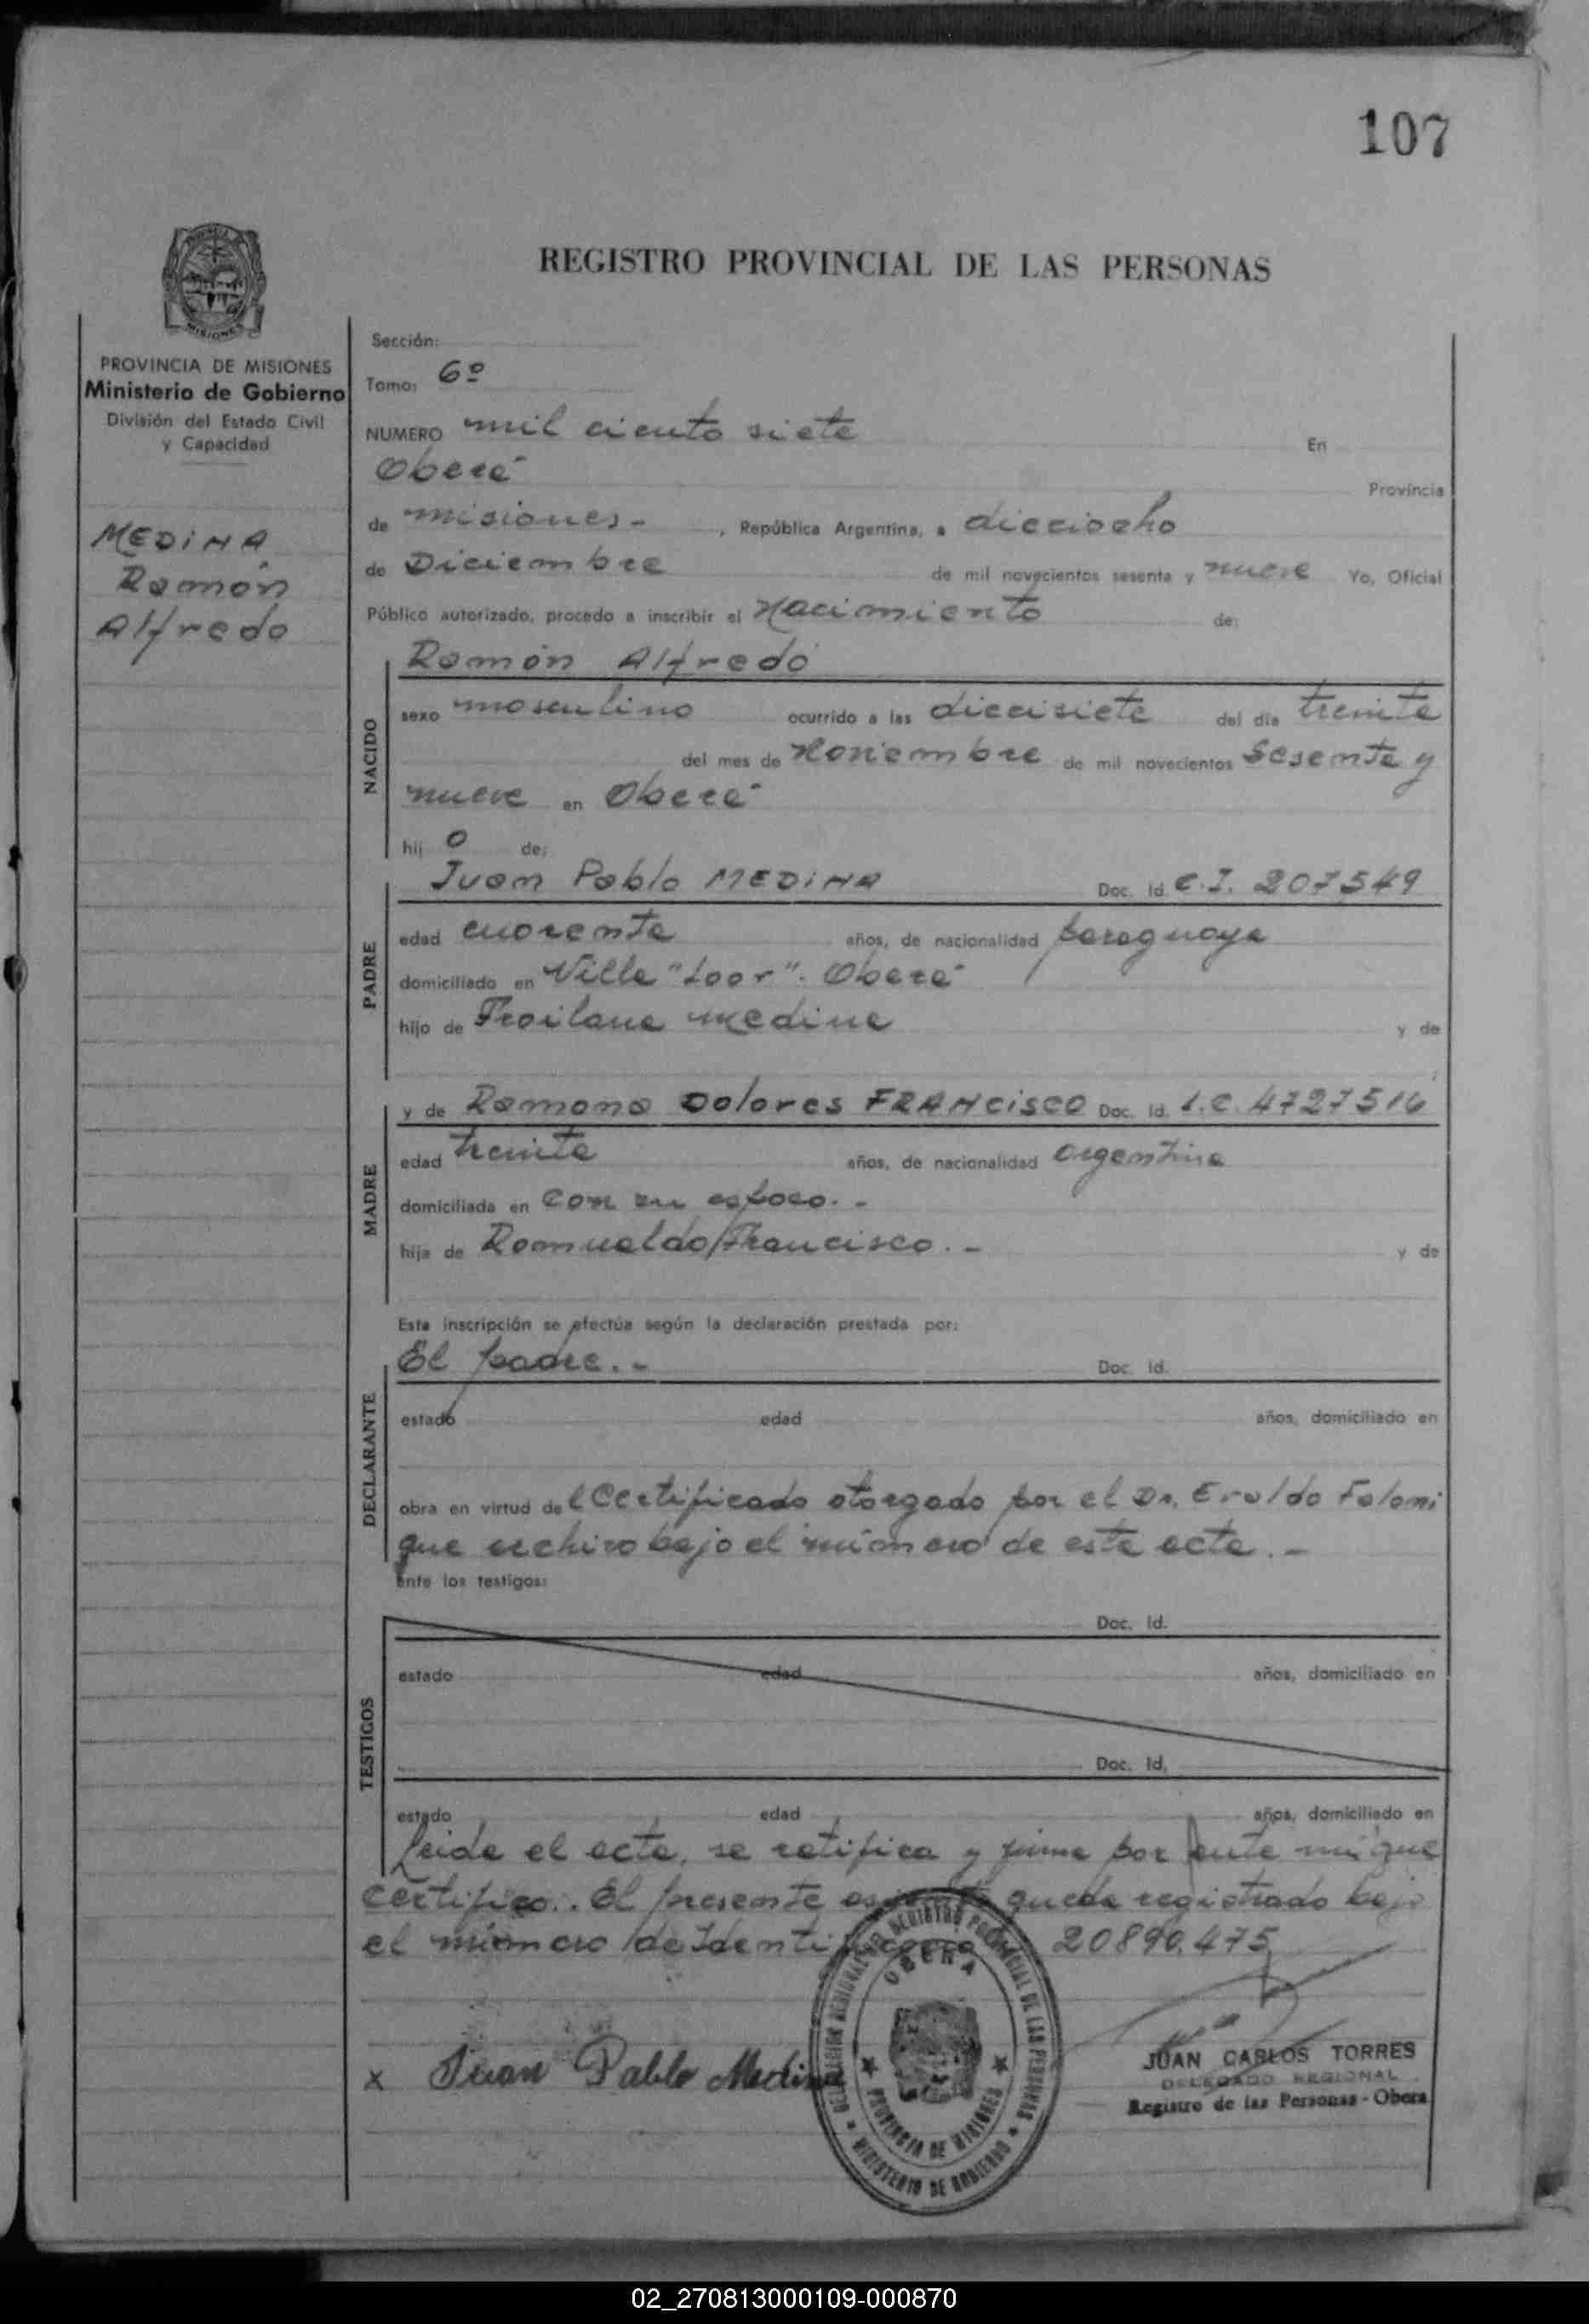 107
REGISTRO PROVINCIAL DE LAS PERSONAS
MISIONES
PROVINCIA DE MISIONES
Ministerio de Gobierno
División del Estado Civil
y Capacidad
MEDINA
Ramón
Alfredo
Sección:
Tomo: 6º
NUMERO mil ciento siete En
Oberá Provincia
de misiones- , República Argentina, a dieciocho
de Diciembre de mil novecientos sesenta y nueve Yo, Oficial
Público autorizado, procedo a inscribir el Nacimiento de:
NACIDO
Ramón Alfredo
sexo masculino ocurrido a las diecisiete del día treinta
del mes de Noviembre de mil novecientos Sesenta y
nueve en Oberá
hij o de:
PADRE
Juan Pablo MEDINA Doc. Id. C.I. 207549
edad cuarenta años, de nacionalidad paraguaya
domiciliado en Villa "Loor". Oberá
hijo de Troilana medina y de
MADRE
y de Ramona Dolores FRANCISCO Doc. Id. L.C. 4727516
edad treinta años, de nacionalidad argentina
domiciliada en con su esposo.-
hija de Romualda Francisco.- y de
Esta inscripción se efectúa según la declaración prestada por:
DECLARANTE
El padre.- Doc. Id.
estado edad años, domiciliado en
obra en virtud del Certificado otorgado por el Dr. Eraldo Faloni
que archivo bajo el número de este acta.-
ante los testigos:
TESTIGOS
Doc. Id.
estado edad años, domiciliado en
Doc. Id.
estado edad años, domiciliado en
Leida el acta, se ratifica y firma por ante mi que
certifico.. El presente queda registrado bajo
el número de 20890.475
x Juan Pablo Medina
OBERA
REGISTRO PROVINCIAL DE LAS PERSONAS
PROVINCIA DE MISIONES
MINISTERIO DE GOBIERNO
JUAN CARLOS TORRES
DELEGADO REGIONAL
Registro de las Personas - Obera
02_270813000109-000870